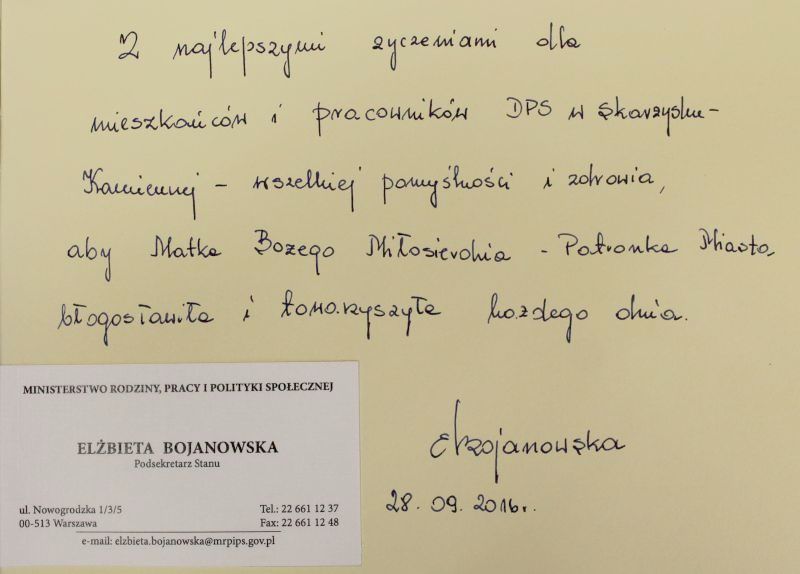 Z najlepszymi życzeniami dla
mieszkańców i pracowników DPS w Skarżysku-
Kamiennej – wszelkiej pomyślności i zdrowia,
aby Matka Bożego Miłosierdzia – Patronka Miasta,
błogosławiła i towarzyszyła każdego dnia.
EBojanowska
28.09.2016r.
MINISTERSTWO RODZINY, PRACY I POLITYKI SPOŁECZNEJ
ELŻBIETA BOJANOWSKA
Podsekretarz Stanu
ul. Nowogrodzka 1/3/5 Tel.: 22 661 12 37
00-513 Warszawa Fax: 22 661 12 48
e-mail: elzbieta.bojanowska@mrpips.gov.pl